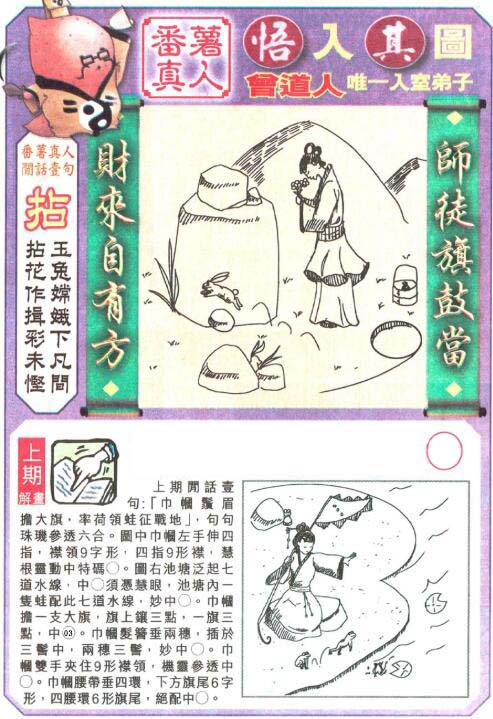 番薯
真人
悟入其圖
曾道人 唯一入室弟子
番薯真人
閒話壹句
拈
玉兔嫦娥下凡間
拈花作揖彩未慳
財來自有方
師徒旗鼓當
上期
解畫
上期閒話壹
句:「巾幗鬚眉
擔大旗，率荷領蛙征戰地」，句句
珠璣參透六合。圖中巾幗左手伸四
指，襟領9字形，四指9形襟，慧
根靈動中特碼○。圖右池塘泛起七
道水線，中○須憑慧眼，池塘內一
隻蛙配此七道水線，妙中○。巾幗
擔一支大旗，旗上鑲三點，一旗三
點，中03。巾幗髮簪垂兩穗，插於
三髻中，兩穗三髻，妙中○。巾幗
雙手夾住9形襟領，機靈參透中
○。巾幗腰帶垂四環，下方旗尾6字
形，四腰環6形旗尾，絕配中○。